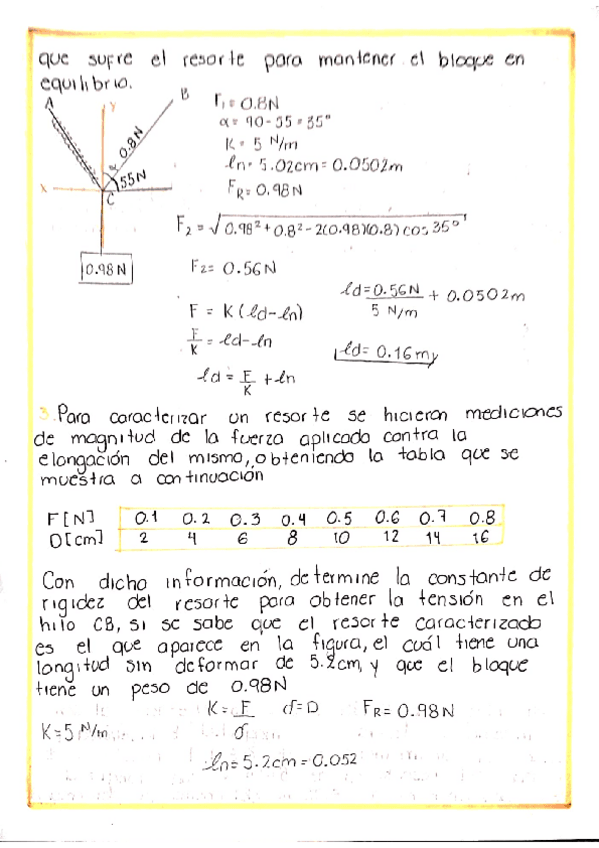 que sufre el resorte para mantener el bloque en
equilibrio.
A Y B
0.8N
α
X 55N
C
0.98N
F₁= 0.8N
α= 90-55=35°
K= 5 N/m
ln= 5.02cm= 0.0502m
FR= 0.98N
F₂=√0.98²+0.8²-2(0.98)(0.8)cos 35°
F₂= 0.56N
F = K(ld-ln)
F/K = ld-ln
ld = F/K + ln
ld= 0.56N / 5 N/m + 0.0502m
ld= 0.16m
3. Para caracterizar un resorte se hicieron mediciones
de magnitud de la fuerza aplicada contra la
elongación del mismo, obteniendo la tabla que se
muestra a continuación
F[N] 0.1 0.2 0.3 0.4 0.5 0.6 0.7 0.8
D[cm] 2 4 6 8 10 12 14 16
Con dicha información, determine la constante de
rigidez del resorte para obtener la tensión en el
hilo CB, si se sabe que el resorte caracterizado
es el que aparece en la figura, el cuál tiene una
longitud sin deformar de 5.2cm, y que el bloque
tiene un peso de 0.98N
K= F/σ σ=D FR= 0.98N
K=5 N/m
ln= 5.2cm = 0.052